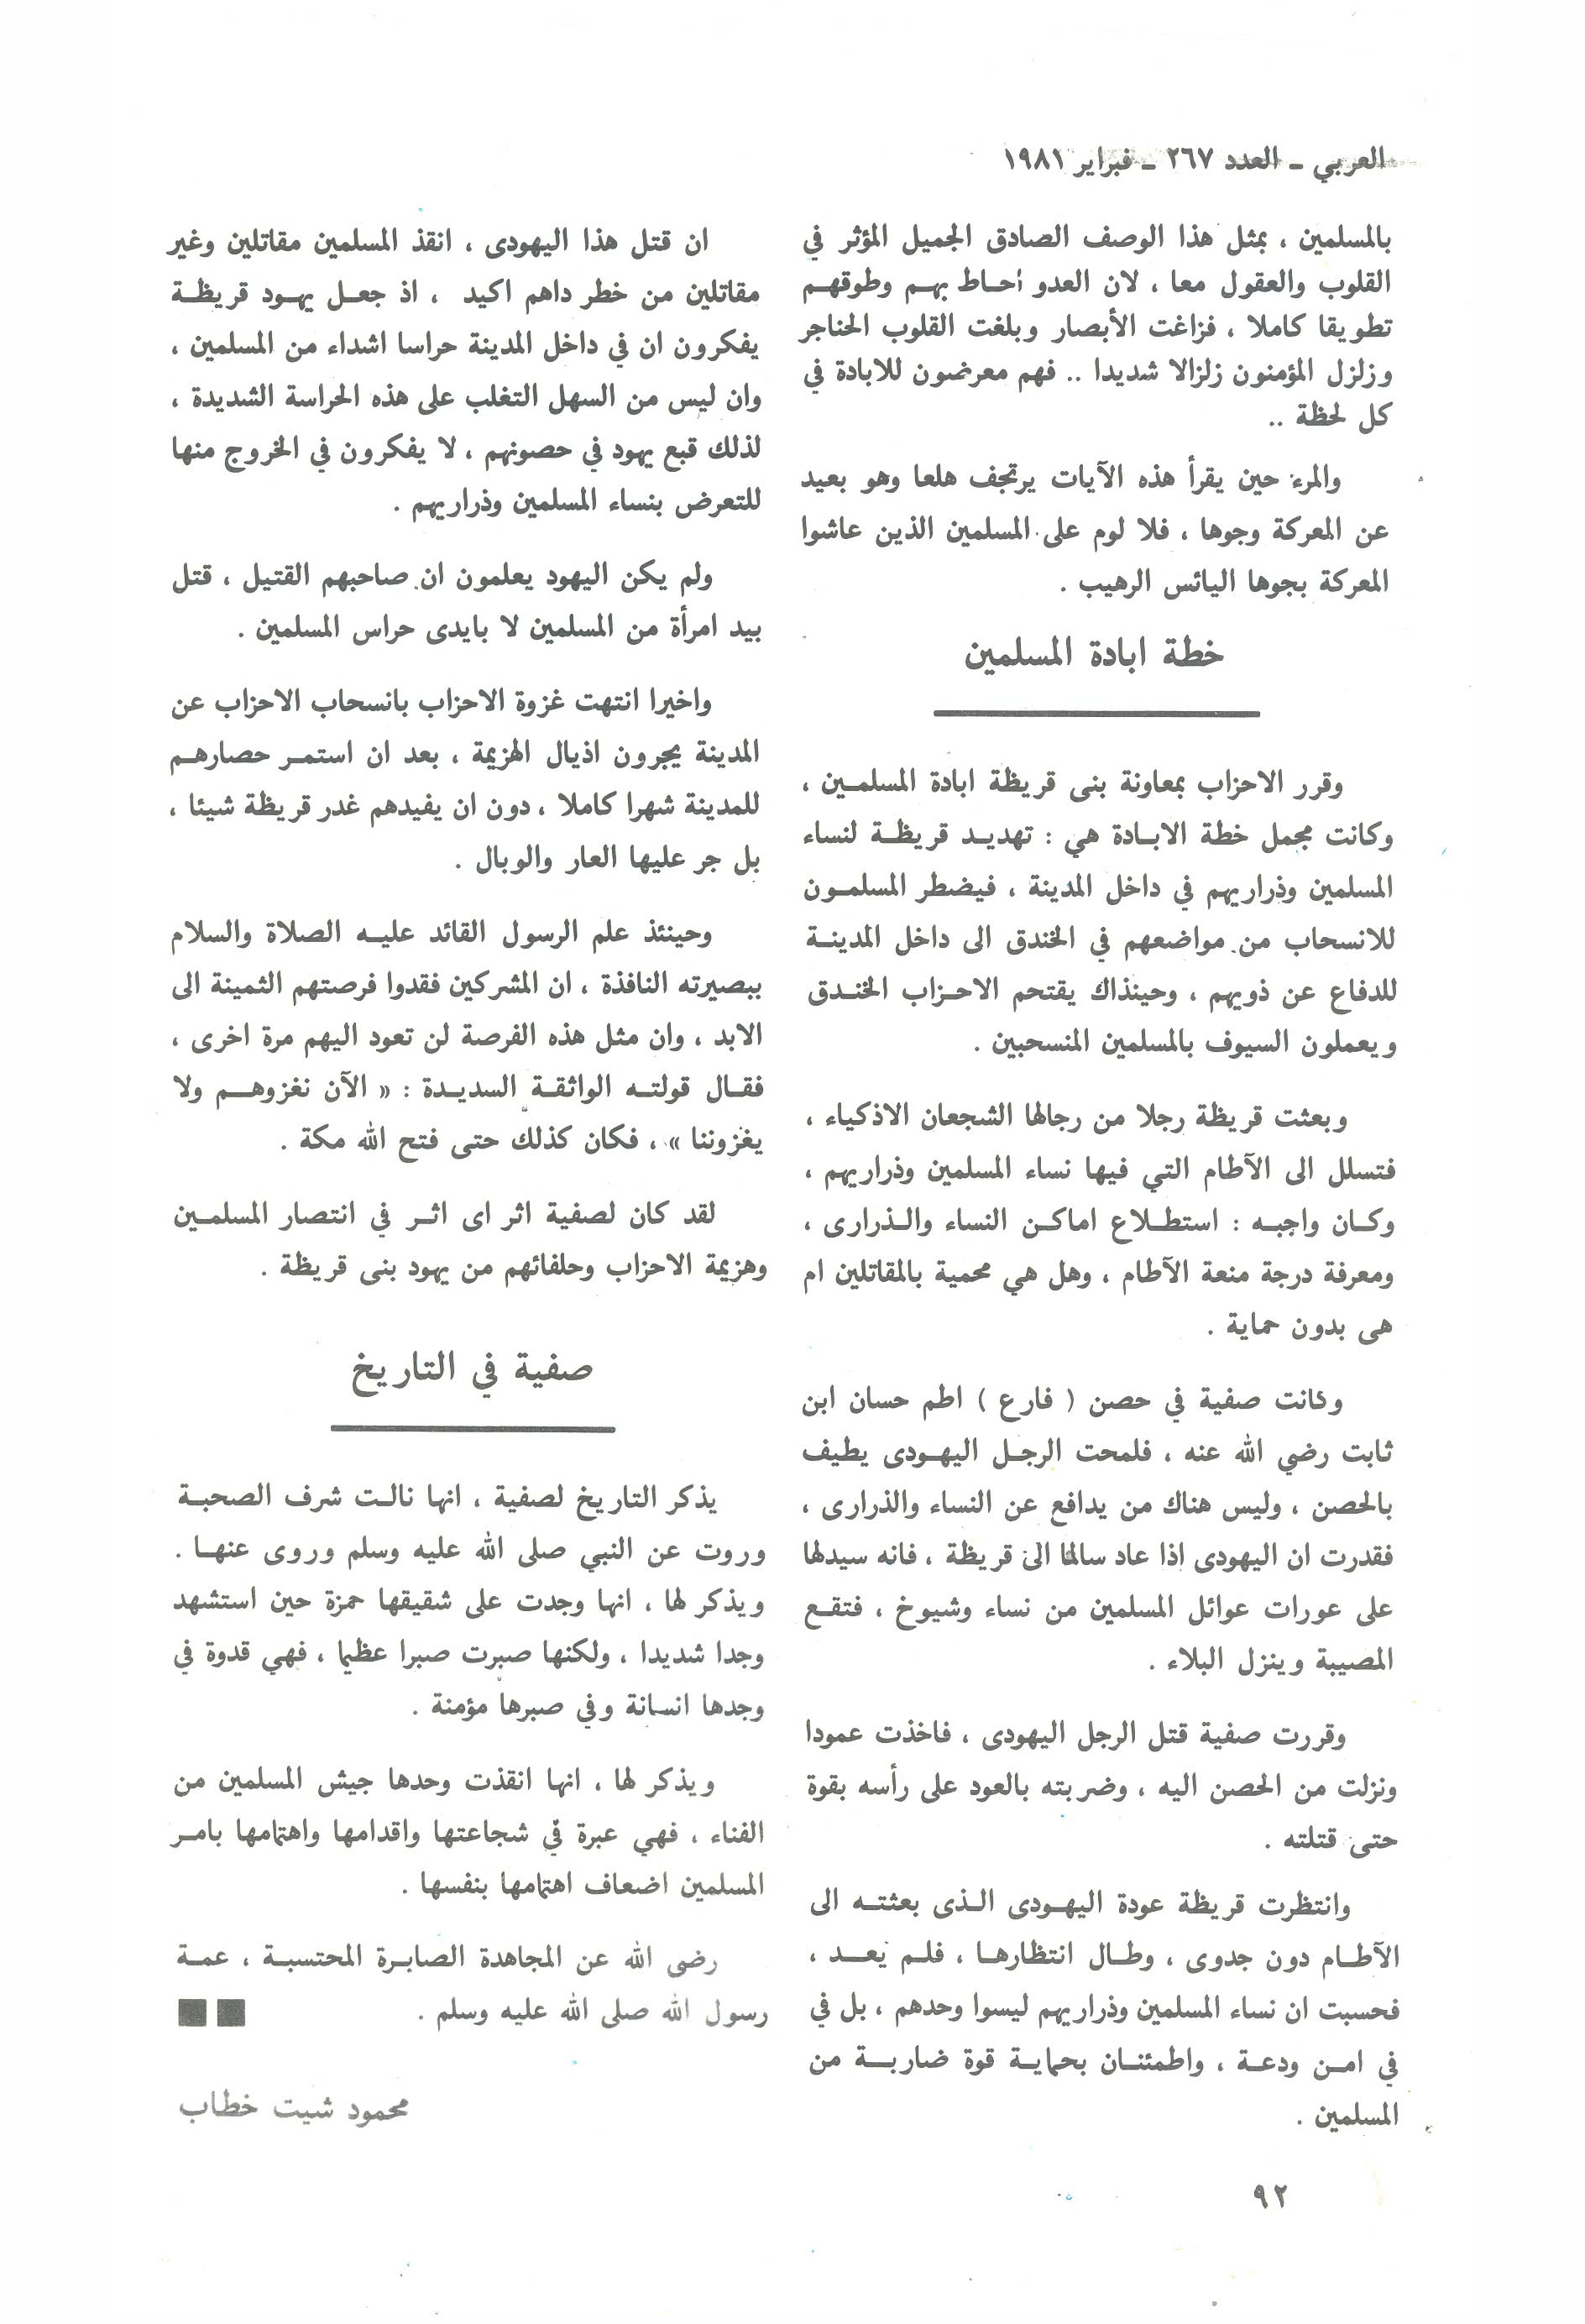 العربي ـ العدد ٢٦٧ ـ فبراير ١٩٨١
بالمسلمين ، بمثل هذا الوصف الصادق الجميل المؤثر في
القلوب والعقول معا ، لان العدو أحاط بهم وطوقهم
تطويقا كاملا ، فزاغت الأبصار وبلغت القلوب الحناجر
وزلزل المؤمنون زلزالا شديدا .. فهم معرضون للابادة في
كل لحظة ..
والمرء حين يقرأ هذه الآيات يرتجف هلعا وهو بعيد
عن المعركة وجوها ، فلا لوم على المسلمين الذين عاشوا
المعركة بجوها اليائس الرهيب .
خطة ابادة المسلمين
وقرر الاحزاب بمعاونة بنى قريظة ابادة المسلمين ،
وكانت مجمل خطة الابادة هي : تهديد قريظة لنساء
المسلمين وذراريهم في داخل المدينة ، فيضطر المسلمون
للانسحاب من مواضعهم في الخندق الى داخل المدينة
للدفاع عن ذويهم ، وحينذاك يقتحم الاحزاب الخندق
ويعملون السيوف بالمسلمين المنسحبين .
وبعثت قريظة رجلا من رجالها الشجعان الاذكياء ،
فتسلل الى الآطام التي فيها نساء المسلمين وذراريهم ،
وكان واجبه : استطلاع اماكن النساء والذرارى ،
ومعرفة درجة منعة الآطام ، وهل هي محمية بالمقاتلين ام
هى بدون حماية .
وكانت صفية في حصن ( فارع ) اطم حسان ابن
ثابت رضي الله عنه ، فلمحت الرجل اليهودى يطيف
بالحصن ، وليس هناك من يدافع عن النساء والذرارى ،
فقدرت ان اليهودى إذا عاد سالما الى قريظة ، فانه سيدلها
على عورات عوائل المسلمين من نساء وشيوخ ، فتقع
المصيبة وينزل البلاء .
وقررت صفية قتل الرجل اليهودى ، فاخذت عمودا
ونزلت من الحصن اليه ، وضربته بالعود على رأسه بقوة
حتى قتلته .
وانتظرت قريظة عودة اليهودى الذى بعثته الى
الآطام دون جدوى ، وطال انتظارها ، فلم يعد ،
فحسبت ان نساء المسلمين وذراريهم ليسوا وحدهم ، بل في
في امن ودعة ، واطمئنان بحماية قوة ضاربة من
المسلمين .
ان قتل هذا اليهودى ، انقذ المسلمين مقاتلين وغير
مقاتلين من خطر داهم اكيد ، اذ جعل يهود قريظة
يفكرون ان في داخل المدينة حراسا اشداء من المسلمين ،
وان ليس من السهل التغلب على هذه الحراسة الشديدة ،
لذلك قبع يهود في حصونهم ، لا يفكرون في الخروج منها
للتعرض بنساء المسلمين وذراريهم .
ولم يكن اليهود يعلمون ان صاحبهم القتيل ، قتل
بيد امرأة من المسلمين لا بايدى حراس المسلمين .
واخيرا انتهت غزوة الاحزاب بانسحاب الاحزاب عن
المدينة يجرون اذيال الهزيمة ، بعد ان استمر حصارهم
للمدينة شهرا كاملا ، دون ان يفيدهم غدر قريظة شيئا ،
بل جر عليها العار والوبال .
وحينئذ علم الرسول القائد عليه الصلاة والسلام
ببصيرته النافذة ، ان المشركين فقدوا فرصتهم الثمينة الى
الابد ، وان مثل هذه الفرصة لن تعود اليهم مرة اخرى ،
فقال قولته الواثقة السديدة : « الآن نغزوهم ولا
يغزوننا » ، فكان كذلك حتى فتح الله مكة .
لقد كان لصفية اثر اى اثر في انتصار المسلمين
وهزيمة الاحزاب وحلفائهم من يهود بنى قريظة .
صفية في التاريخ
يذكر التاريخ لصفية ، انها نالت شرف الصحبة
وروت عن النبي صلى الله عليه وسلم وروى عنها .
ويذكر لها ، انها وجدت على شقيقها حمزة حين استشهد
وجدا شديدا ، ولكنها صبرت صبرا عظيما ، فهي قدوة في
وجدها انسانة وفي صبرها مؤمنة .
ويذكر لها ، انها انقذت وحدها جيش المسلمين من
الفناء ، فهي عبرة في شجاعتها واقدامها واهتمامها بامر
المسلمين اضعاف اهتمامها بنفسها .
رضى الله عن المجاهدة الصابرة المحتسبة ، عمة
رسول الله صلى الله عليه وسلم .
محمود شيت خطاب
٩٢